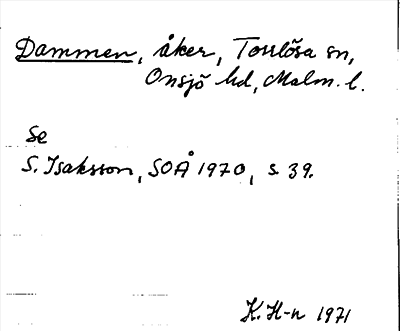 Dammen, åker, Torrlösa sn,
Onsjö hd, Malm. l.
Se
S. Isaksson, SOÅ 1970, s. 39.
K. H-n 1971